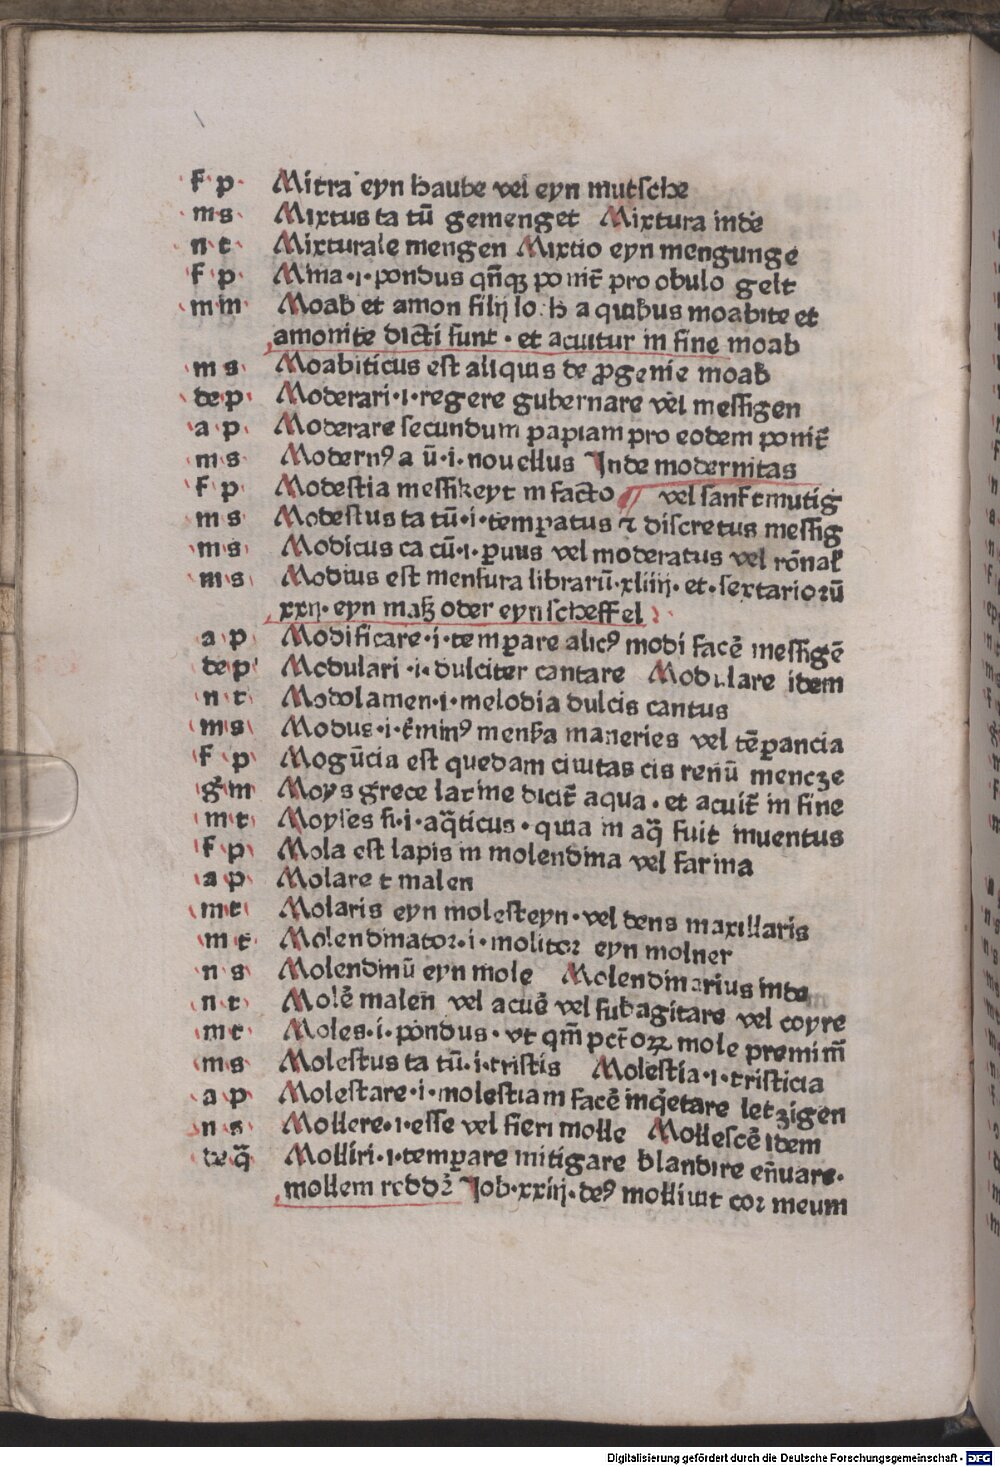 f p Mitra eyn haube vel eyn mutsche
m s Mixtus ta tū gemenget Mixtura inde
n t Mixturale mengen Mixtio eyn mengunge
f p Mina·i·pondus qn̄qꝫ ponit̄ pro obulo gelt
m m Moab et amon filij loth a quibus moabite et
amonite dicti sunt·et acuitur in fine moab
m s Moabiticus est aliquis de ꝓgenie moab
de p Moderari·i·regere gubernare vel messigen
a p Moderare secundum papiam pro eodem ponit̄
m s Modernꝰ a ū·i·nouellus Inde modernitas
f p Modestia messikeyt in facto vel sanftmutig
m s Modestus ta tū·i·temꝑatus ⁊ discretus messig
m s Modicus ca cū·i·ꝑuus vel moderatus vel rōnal'
m s Modius est mensura librarū·xliiij·et·sextarioꝛū
xxij·eyn maß oder eyn scheffel
a p Modificare·i·temꝑare alicꝰ modi facē messigē
de p Modulari·i·dulciter cantare Modulare idem
n t Modolamen·i·melodia dulcis cantus
m s Modus·i·t̄minꝰ mensa maneries vel tēꝑancia
f p Mogūcia est quedam ciuitas cis renū mencze
g̊ m Moys grece latine dicit̄ aqua·et acuit̄ in fine
m t Moyses si·i·aq̄ticus·quia in aq̄ fuit inuentus
f p Mola est lapis in molendina vel farina
a p Molare t malen
m t Molaris eyn molesteyn·vel dens maxillaris
m t Molendinatoꝛ·i·molitoꝛ eyn molner
n s Molendinū eyn mole Molendinarius inde
n t Molē malen vel acuē vel subagitare vel coyre
m t Moles·i·pondus·vt qm̄ pct̄oꝝ mole premim̄
m s Molestus ta tū·i·tristis Molestia·i·tristicia
a p Molestare·i·molestiam facē inq̄etare letzigen
n s Mollere·i·esse vel fieri molle Mollescē idem
de q̄ Molliri·i·temꝑare mitigare blandire en̄uare·
mollem reddē Job·xxiij·deꝰ molliuit coꝛ meum
Digitalisierung gefördert durch die Deutsche Forschungsgemeinschaft · DFG